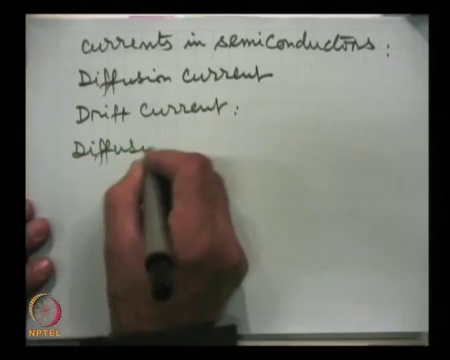 currents in semiconductors :
Diffusion Current
Drift Current :
Diffus
NPTEL